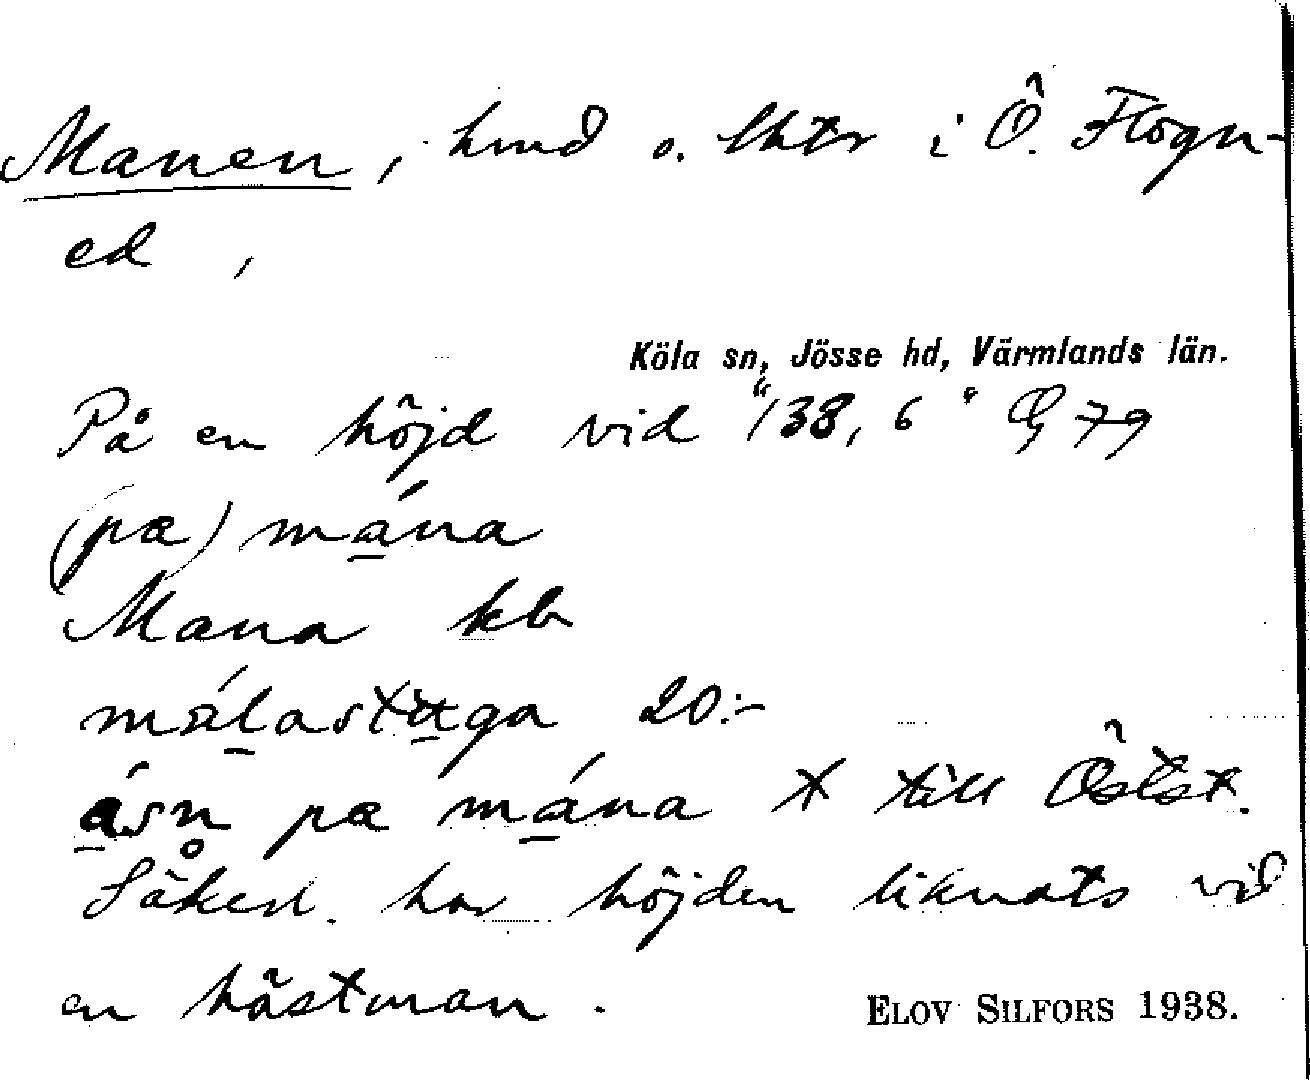 Manen, hmd o. lhtr i Ö. Flogn-
ed,
Köla sn, Jösse hd, Värmlands län.
På en höjd vid "138,6"
(pæ) mána
Mana kb
málastuga 20:-
åsn pæ mána + till Östst.
Säkerl. har höjden liknats vid
en hästman.
ELOV SILFORS 1938.